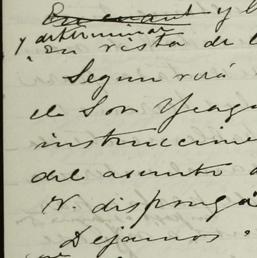 En cuant y l
y determinar
En vista de l
Segun verá
de Son Yzag
instruccione
del asunto d
V. disponga
Dejamos